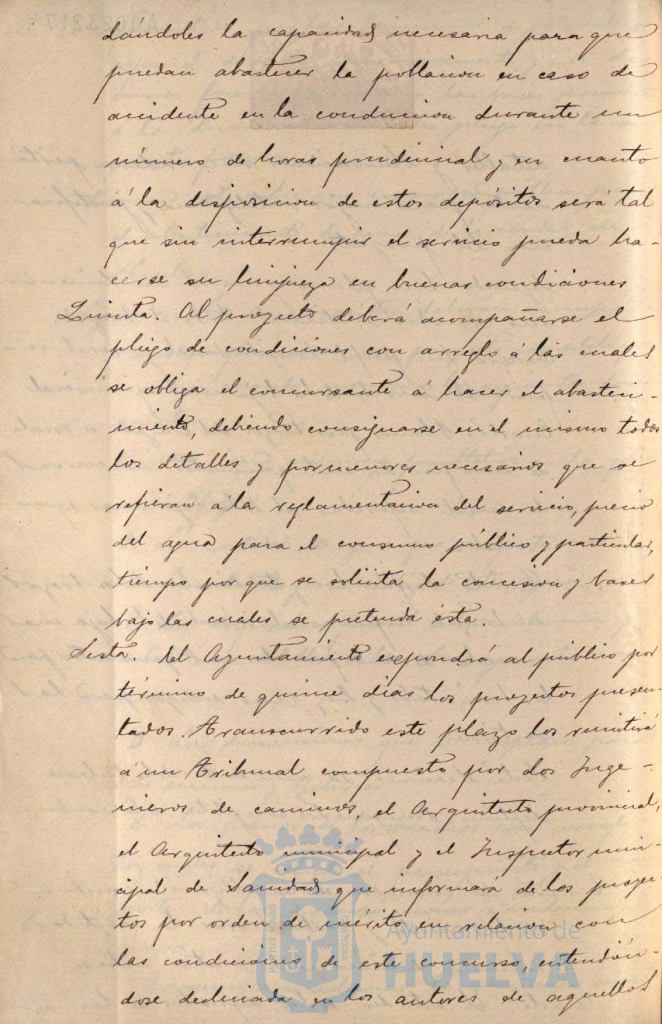 dándoles la capacidad necesaria para que
puedan abastecer la poblacion en caso de
accidente en la conduccion durante un
número de horas prudencial y en cuanto
á la disposicion de estos depósitos será tal
que sin interrumpir el servicio pueda ha-
cerse su limpieza en buenas condiciones
Quinta. Al proyecto deberá acompañarse el
pliego de condiciones con arreglo á las cuales
se obliga el concursante á hacer el abasteci-
miento, debiendo consignarse en el mismo todos
los detalles y pormenores necesarios que se
refieran á la reglamentacion del servicio, precio
del agua para el consumo público y particular,
tiempo por que se solicita la concesion y bases
bajo las cuales se pretenda ésta.
Sesta. El Ayuntamiento expondrá al público por
término de quince dias los proyectos presen-
tados. Transcurrido este plazo los remitirá
á un Tribunal compuesto por dos Inge-
nieros de caminos, el Arquitecto provincial,
el Arquitecto municipal y el Inspector muni-
cipal de Sanidad que informará de los proyec-
tos por orden de mérito en relacion con
las condiciones de este concurso, entendién-
dose declinada en los autores de aquellos
Ayuntamiento de
HUELVA